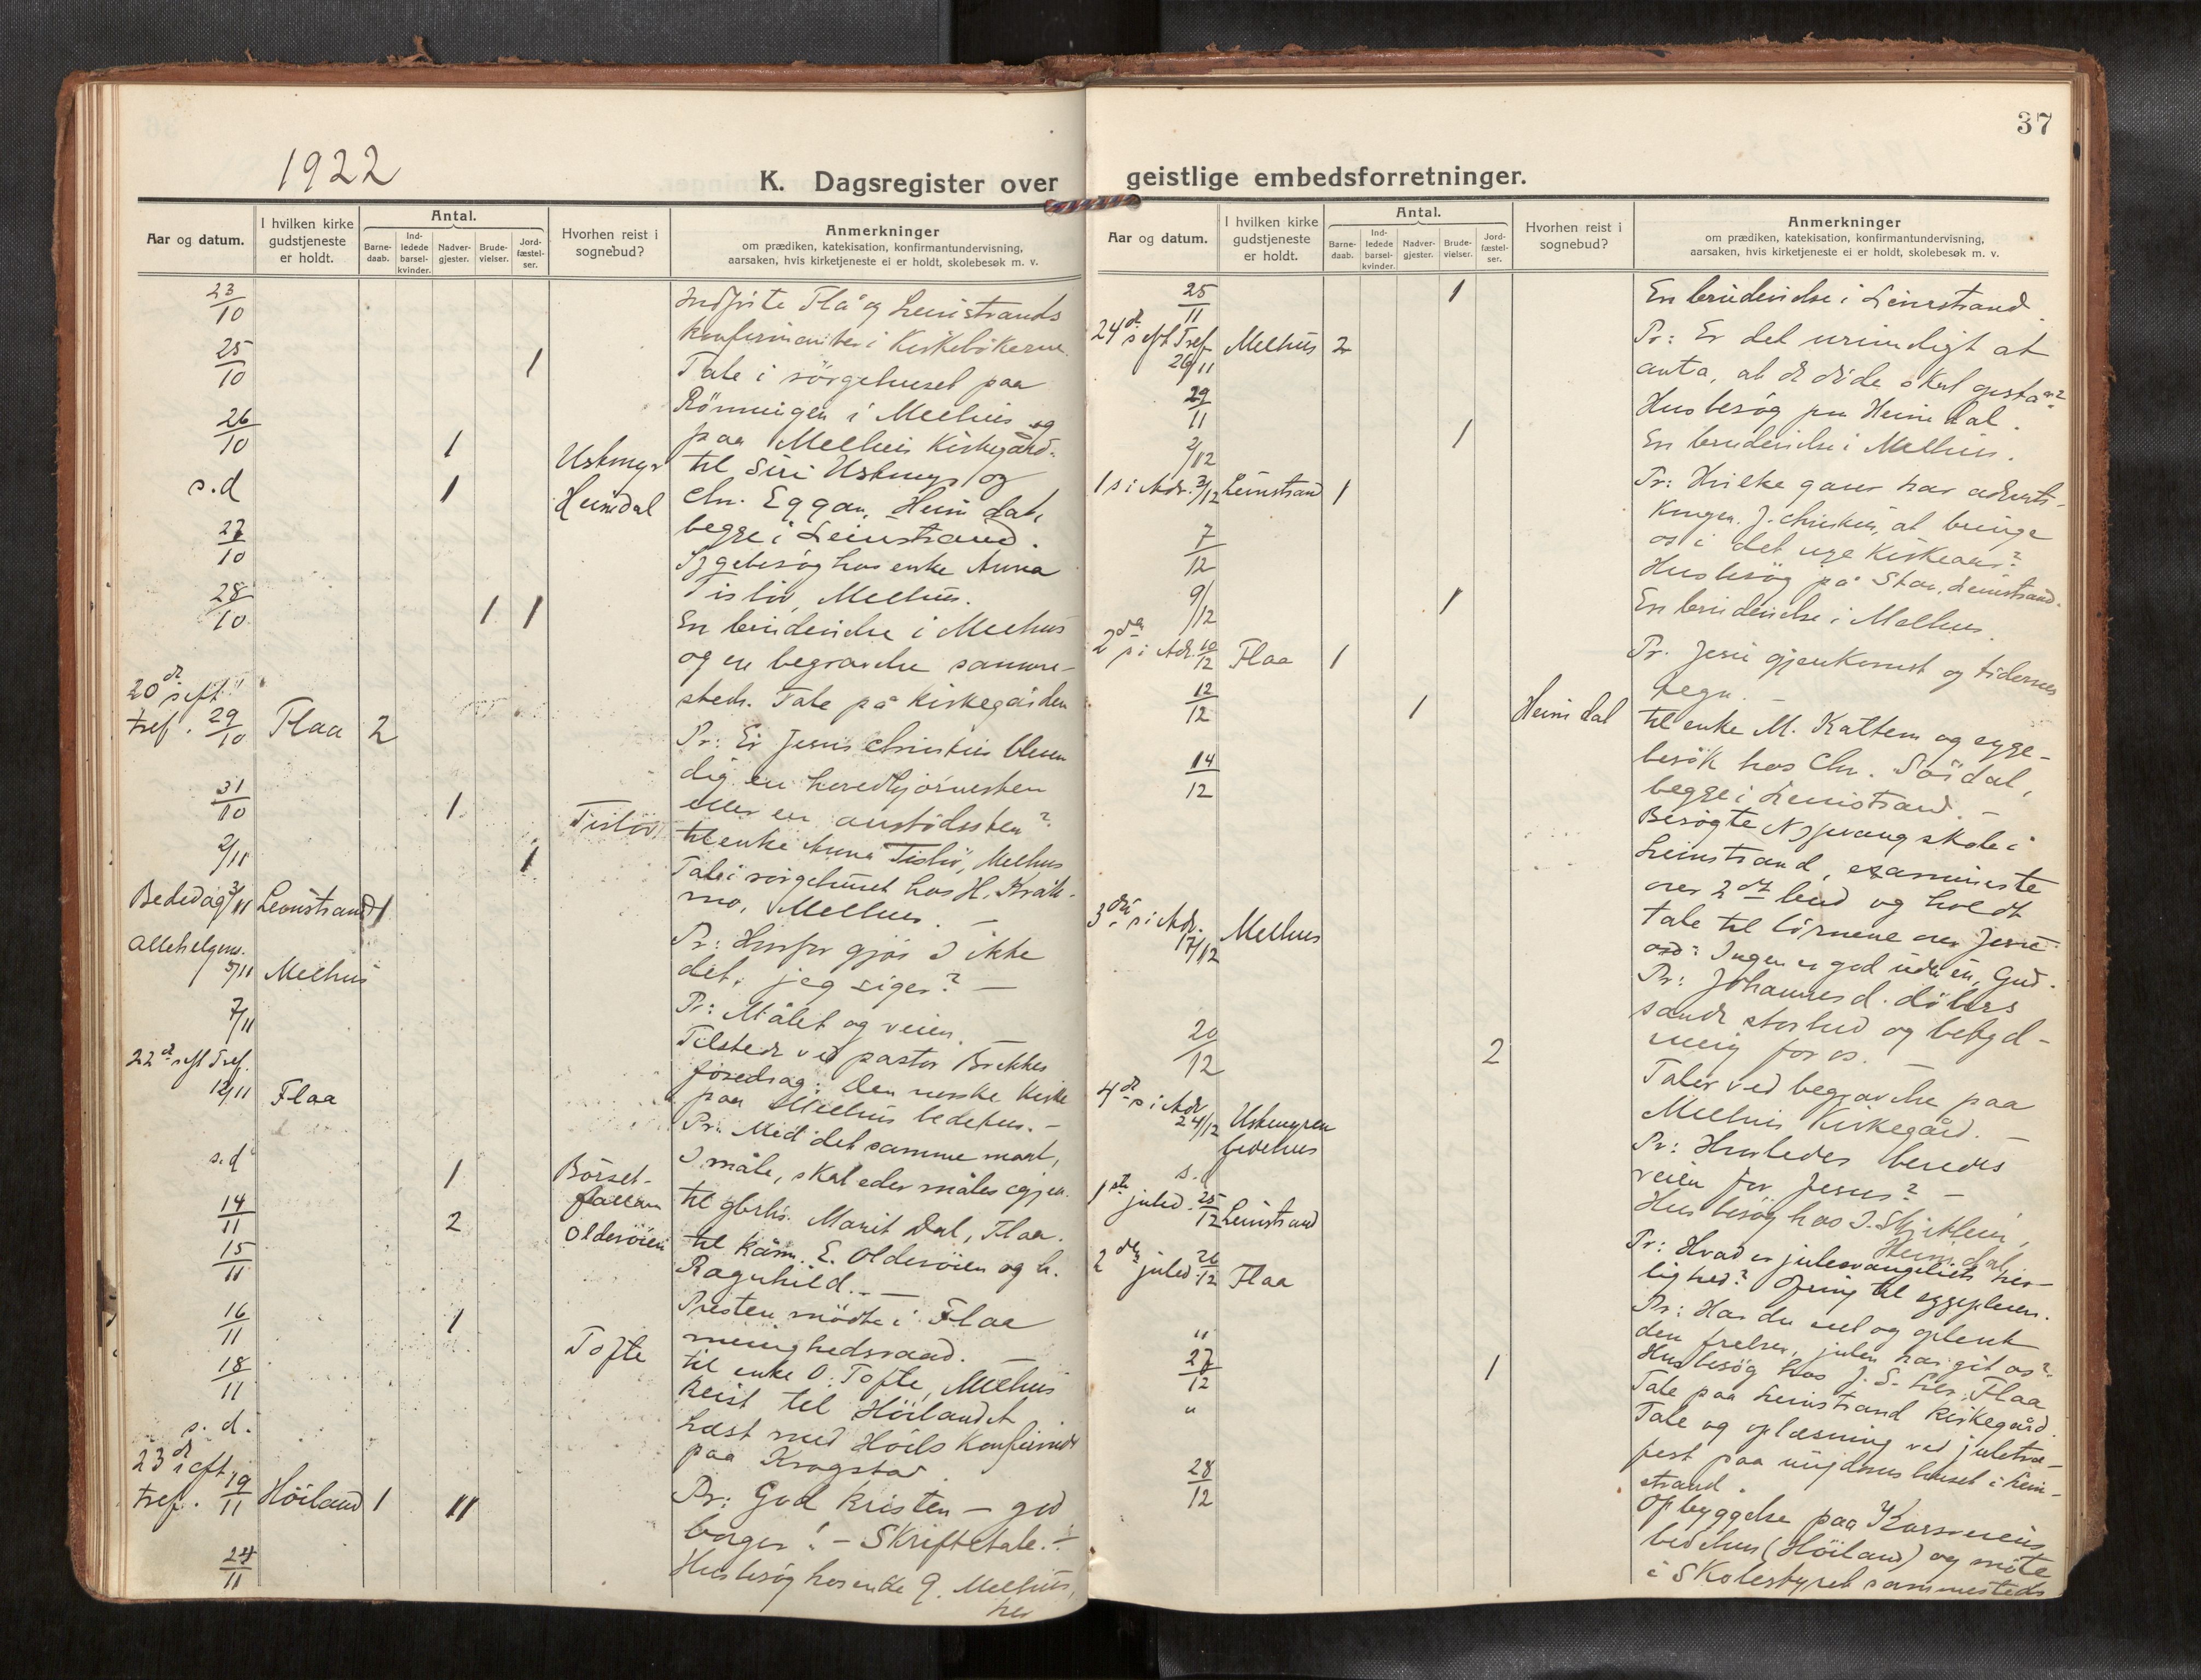 1922
K. Dagsregister over
Aar og datum.
I hvilken kirke
gudstjeneste
er holdt.
Antal.
Barne-
daab.
Ind-
ledede
barsel-
kvinder.
Nadver-
gjester.
Brude-
vielser.
Jord-
fæstel-
ser.
Hvorhen reist i
sognebud?
Anmerkninger
om prædiken, katekisation, konfirmantundervisning,
aarsaken, hvis kirketjeneste ei er holdt, skolebesøk m. v.
23/10 Indførte Flå og Leinstrands
konfirmanter i Kirkebökerne.
25/10 1 Tale i sörgehuset paa
Rönningen i Melhus og
paa Melhus Kirkegård.
26/10 1 Ustmyr til Siri Ustmyr og
s.d 1 Heimdal Chr. Eggan, Heimdal,
begge i Leinstrand.
27/10 Sygebesög hos enke Anna
Tislöv, Melhus.
28/10 1 1 En brudevielse i Melhus
og en begravelse samme-
steds. Tale på kirkegården
20de s eft.
tref. 29/10 Flaa 2 Pr: Er Jesus Christus bleven
dig en hovedhjörnesten
eller en anstödssten?
31/10 1 Tislöv til enke Anna Tislöv, Melhus
2/11 1 Tale i sörgehuset hos H. Kvål-
mo, Melhus. —
Bededag 3/11 Leinstrand 1 Pr: Hvorfor gjör I ikke
det, jeg siger? —
Allehelgens.
5/11 Melhus Pr: Målet og veien. —
7/11 Tilstede ved pastor Brekkes
foredrag: Den norske kirke
paa Melhus bedehus. —
22de s eft Tref.
12/11 Flaa Pr: Med det samme maal,
I måle, skal eder måles igjen.
s.d 1 Börset-
flaaen til gbrks. Marit Dal, Flaa.
14/11 2 Oldersöien til kårm. E. Oldersöien og h.
Ragnhild. —
15/11 Presten mödte i Flaa
menighedsraad. —
16/11 1 Tofte til enke O. Tofte, Melhus
18/11 Reist til Höilandet
s. d. Læst med Höils konfirmder
paa Krogstad.
23de s eft.
tref. 19/11 Höiland 1 11 Pr: God kristen — god
borger! — Skriftetale. —
24/11 Husbesög hos enke G. Melhus,
her
37
geistlige embedsforretninger.
Aar og datum.
I hvilken kirke
gudstjeneste
er holdt.
Antal.
Barne-
daab.
Ind-
ledede
barsel-
kvinder.
Nadver-
gjester.
Brude-
vielser.
Jord-
fæstel-
ser.
Hvorhen reist i
sognebud?
Anmerkninger
om prædiken, katekisation, konfirmantundervisning,
aarsaken, hvis kirketjeneste ei er holdt, skolebesøk m. v.
25/11 1 En brudevielse i Leinstrand.
24de s eft Tref
26/11 Melhus 2 Pr: Er det urimeligt at
anta, at de döde skal opstå?
29/11 Husbesög paa Heimdal.
2/12 1 En brudevielse i Melhus.
1 s i Adv. 3/12 Leinstrand 1 Pr: Hvilke gaver har advents-
kongen, J. Christus, at bringe
os i det nye Kirkeaar?
7/12 Husbesög på Stor, Leinstrand.
9/12 1 En brudevielse i Melhus.
2den s i Adv. 10/12 Flaa 1 Pr. Jesu gjenkomst og tidernes
tegn. —
12/12 1 Heimdal til enke M. Kattem og syge-
besök hos Chr. Sördal,
begge i Leinstrand. —
14/12 Besögte Nypvang skole i
Leinstrand, examinerte
over 2det bud og holdt
tale til börnene over Jesu
ord: Ingen er god uden en, Gud.
3die s i Adv.
17/12 Melhus Pr: Johannes d. döbers
sande storhed og betyd-
ning for os. —
20/12 2 Taler ved begravelse paa
Melhus Kirkegård. —
4de s i Adv
24/12 Ustmyren
bedehus Pr: Hvorledes beredes
veien for Jesus? —
s. d Husbesög hos I. Skjetlein,
Heimdal
1ste juled. 25/12 Leinstrand Pr: Hvad er julevangeliets her-
lighed? Ofring til sygepleien.
2den juled. 26/12 Flaa Pr: Har du set og oplevt
den frelser, julen har git os?
" Husbesög hos J. S. Ler, Flaa
27/12 1 Tale paa Leinstrand kirkegård.
" Tale og oplæsning ved juletræ-
fest paa ungdomshuset i Lein-
strand.
28/12 Opbyggelse paa Korsveiens
bedehus (Höiland) og möte
i Skolestyret sammesteds